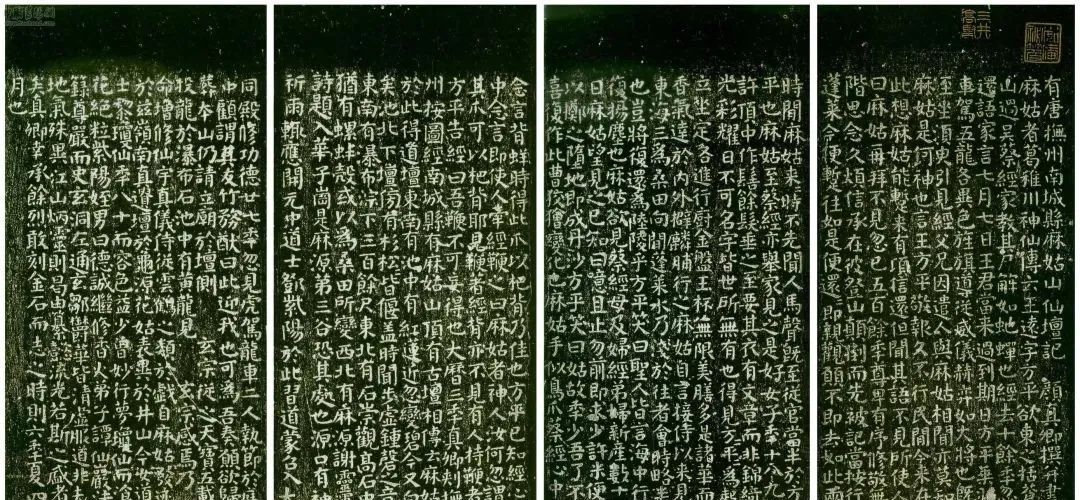 有唐撫州南城縣麻姑山仙壇記 顏真卿撰并書
麻姑者葛稚川神仙傳云王遠字方平欲東之括蒼
山過吳蔡經家教其尸解如蛇蟬也經去十餘年忽
還語家言七月七日王君當來過到期日方平乘羽
車駕五龍各異色旌旗導從威儀赫弈如大將也既
至坐須臾引見經父兄因遣人與麻姑相聞亦莫知
麻姑是何神也言王方平敬報久不行民間今來在
此想麻姑能暫來有頃信還但聞其語不見所使人
曰麻姑再拜不見忽已五百餘年尊卑有序修敬無
階思念久煩信承在彼登山顛倒而先被記當按行
蓬萊今便暫往如是便還即親觀願不即去如此兩
時間麻姑來時不先聞人馬聲既至從官當半於方
平也麻姑至蔡經亦舉家見之是好女子年十八九
許頂中作髻餘髮垂之至要其衣有文章而非錦綺
光彩耀日不可名字皆世所無有也得見方平方平為起
立坐定各進行廚金盤玉杯無限美膳多是諸華而
香氣達於內外擗麟脯行之麻姑自言接待以來見
東海三為桑田向間蓬萊水乃淺於往者會時略半
也豈將復還為陸陵乎方平笑曰聖人皆言海中行
復揚塵也麻姑欲見蔡經母及婦經弟婦新產數十
日麻姑望見之已知曰噫且止勿前即求少許米便
以擲之墮地即成丹沙方平笑曰姑故年少吾了不
喜復作此曹狡獪變化也麻姑手似鳥爪蔡經心中
念言背蛘時得此爪以杷背乃佳也方平已知經心
中念言即使人牽經鞭之曰麻姑者神人汝何忽謂
其爪可以杷背耶見鞭著經背亦不見有人持鞭者
方平告經曰吾鞭不可妄得也大曆三年真卿刺撫
州按圖經南城縣有麻姑山頂有古壇相傳云麻姑
於此得道壇東南有池中有紅蓮近忽變碧今又白
矣池北下壇傍有杉松皆偃蓋時聞步虛鍾磬之音
東南有瀑布淙下三百餘尺東北有石崇觀高石中
猶有螺蚌殼或以為桑田所變西北有麻源謝靈運
詩題入華子岡是麻源第三谷恐其處也源口有神
祈雨輒應開元中道士鄧紫陽於此習道蒙召入大
同殿修功德廿七年忽見虎駕龍車二人執節於庭
中顧謂其友竹務猷曰此迎我也可為吾奏願欲歸
葬本山仍請立廟於壇側 玄宗從之天寶五載
投龍於瀑布石池中有黃龍見 玄宗感焉乃
命增修仙宇真儀侍從雲鶴之類於戲自麻姑發迹
於茲嶺南真遺壇於龜源花姑表異於井山今女道
士黎瓊仙年八十而容色益少曾妙行夢瓊仙而餐
花絕粒紫陽姪男曰德誠繼修香火弟子譚仙巖法
籙尊嚴而史玄洞左通玄鄒鬱華皆清虛服道非夫
地氣殊異江山炳靈則曷由纂懿流光若斯之盛者
矣真卿幸承餘烈敢刻金石而志之時則六年夏四
月也
三井高堅